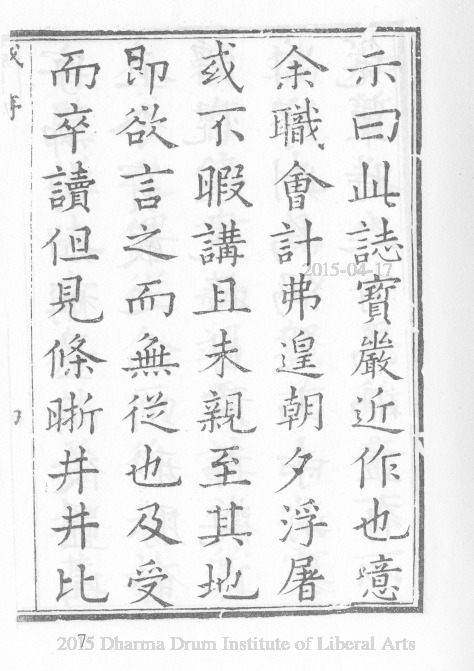 示曰此誌寶巖近作也噫
余職會計弗遑朝夕浮屠
或不暇講且未親至其地
即欲言之而無從也及受
而卒讀但見條晣井井比
序
7
2015-04-17
2015 Dharma Drum Institute of Liberal Arts